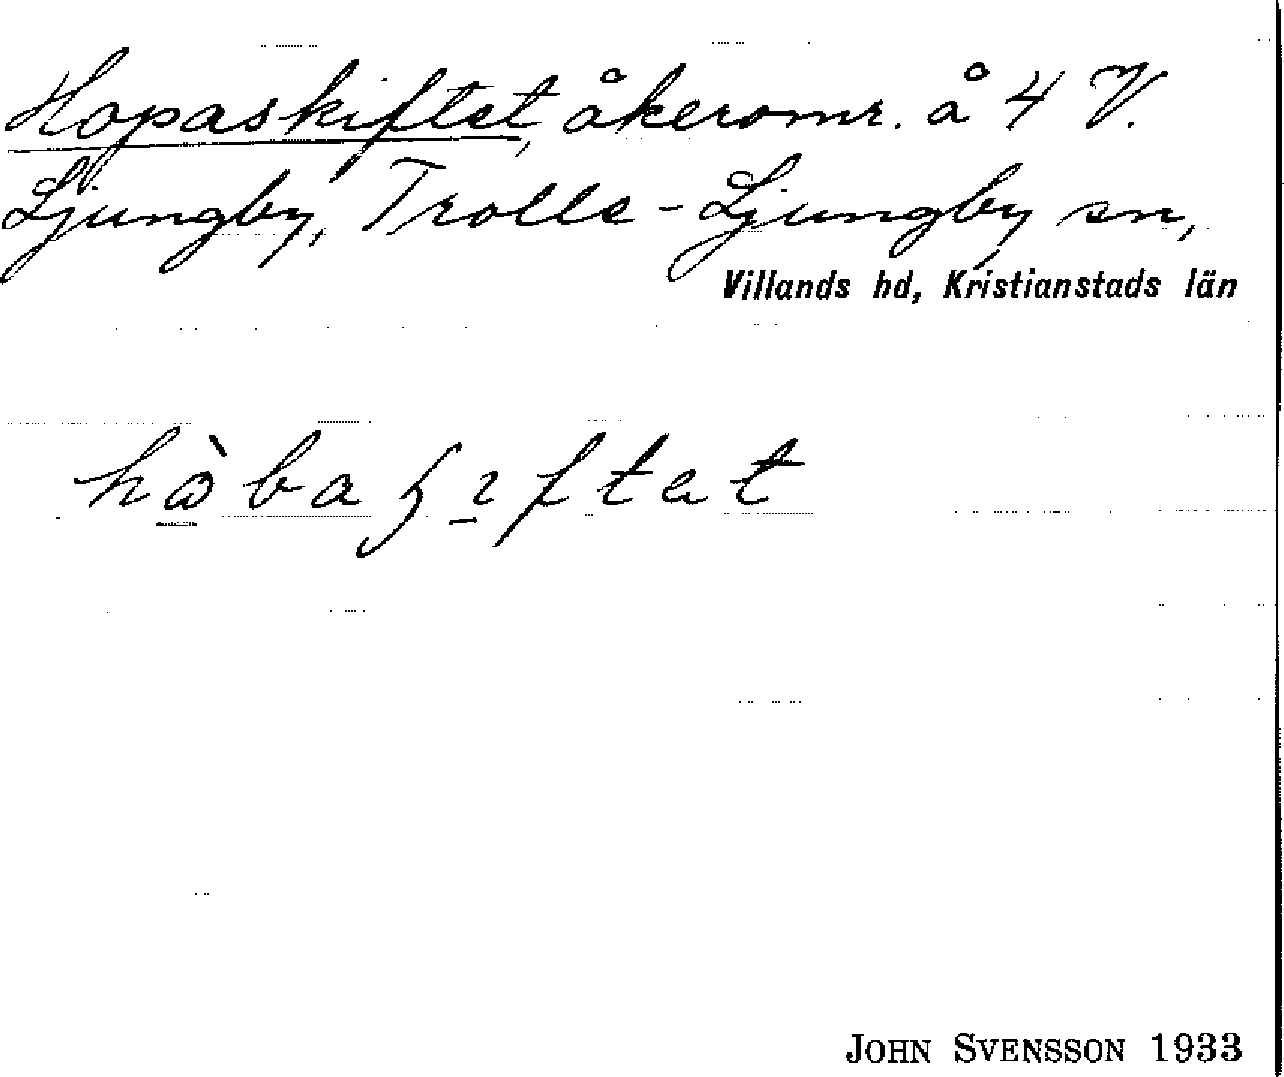 Hopaskiftet, åkeromr. å 4 V.
Ljungby, Trolle-Ljungby sn,
Villands hd, Kristianstads län
hɷ̀baʃɪftat
JOHN SVENSSON 1933